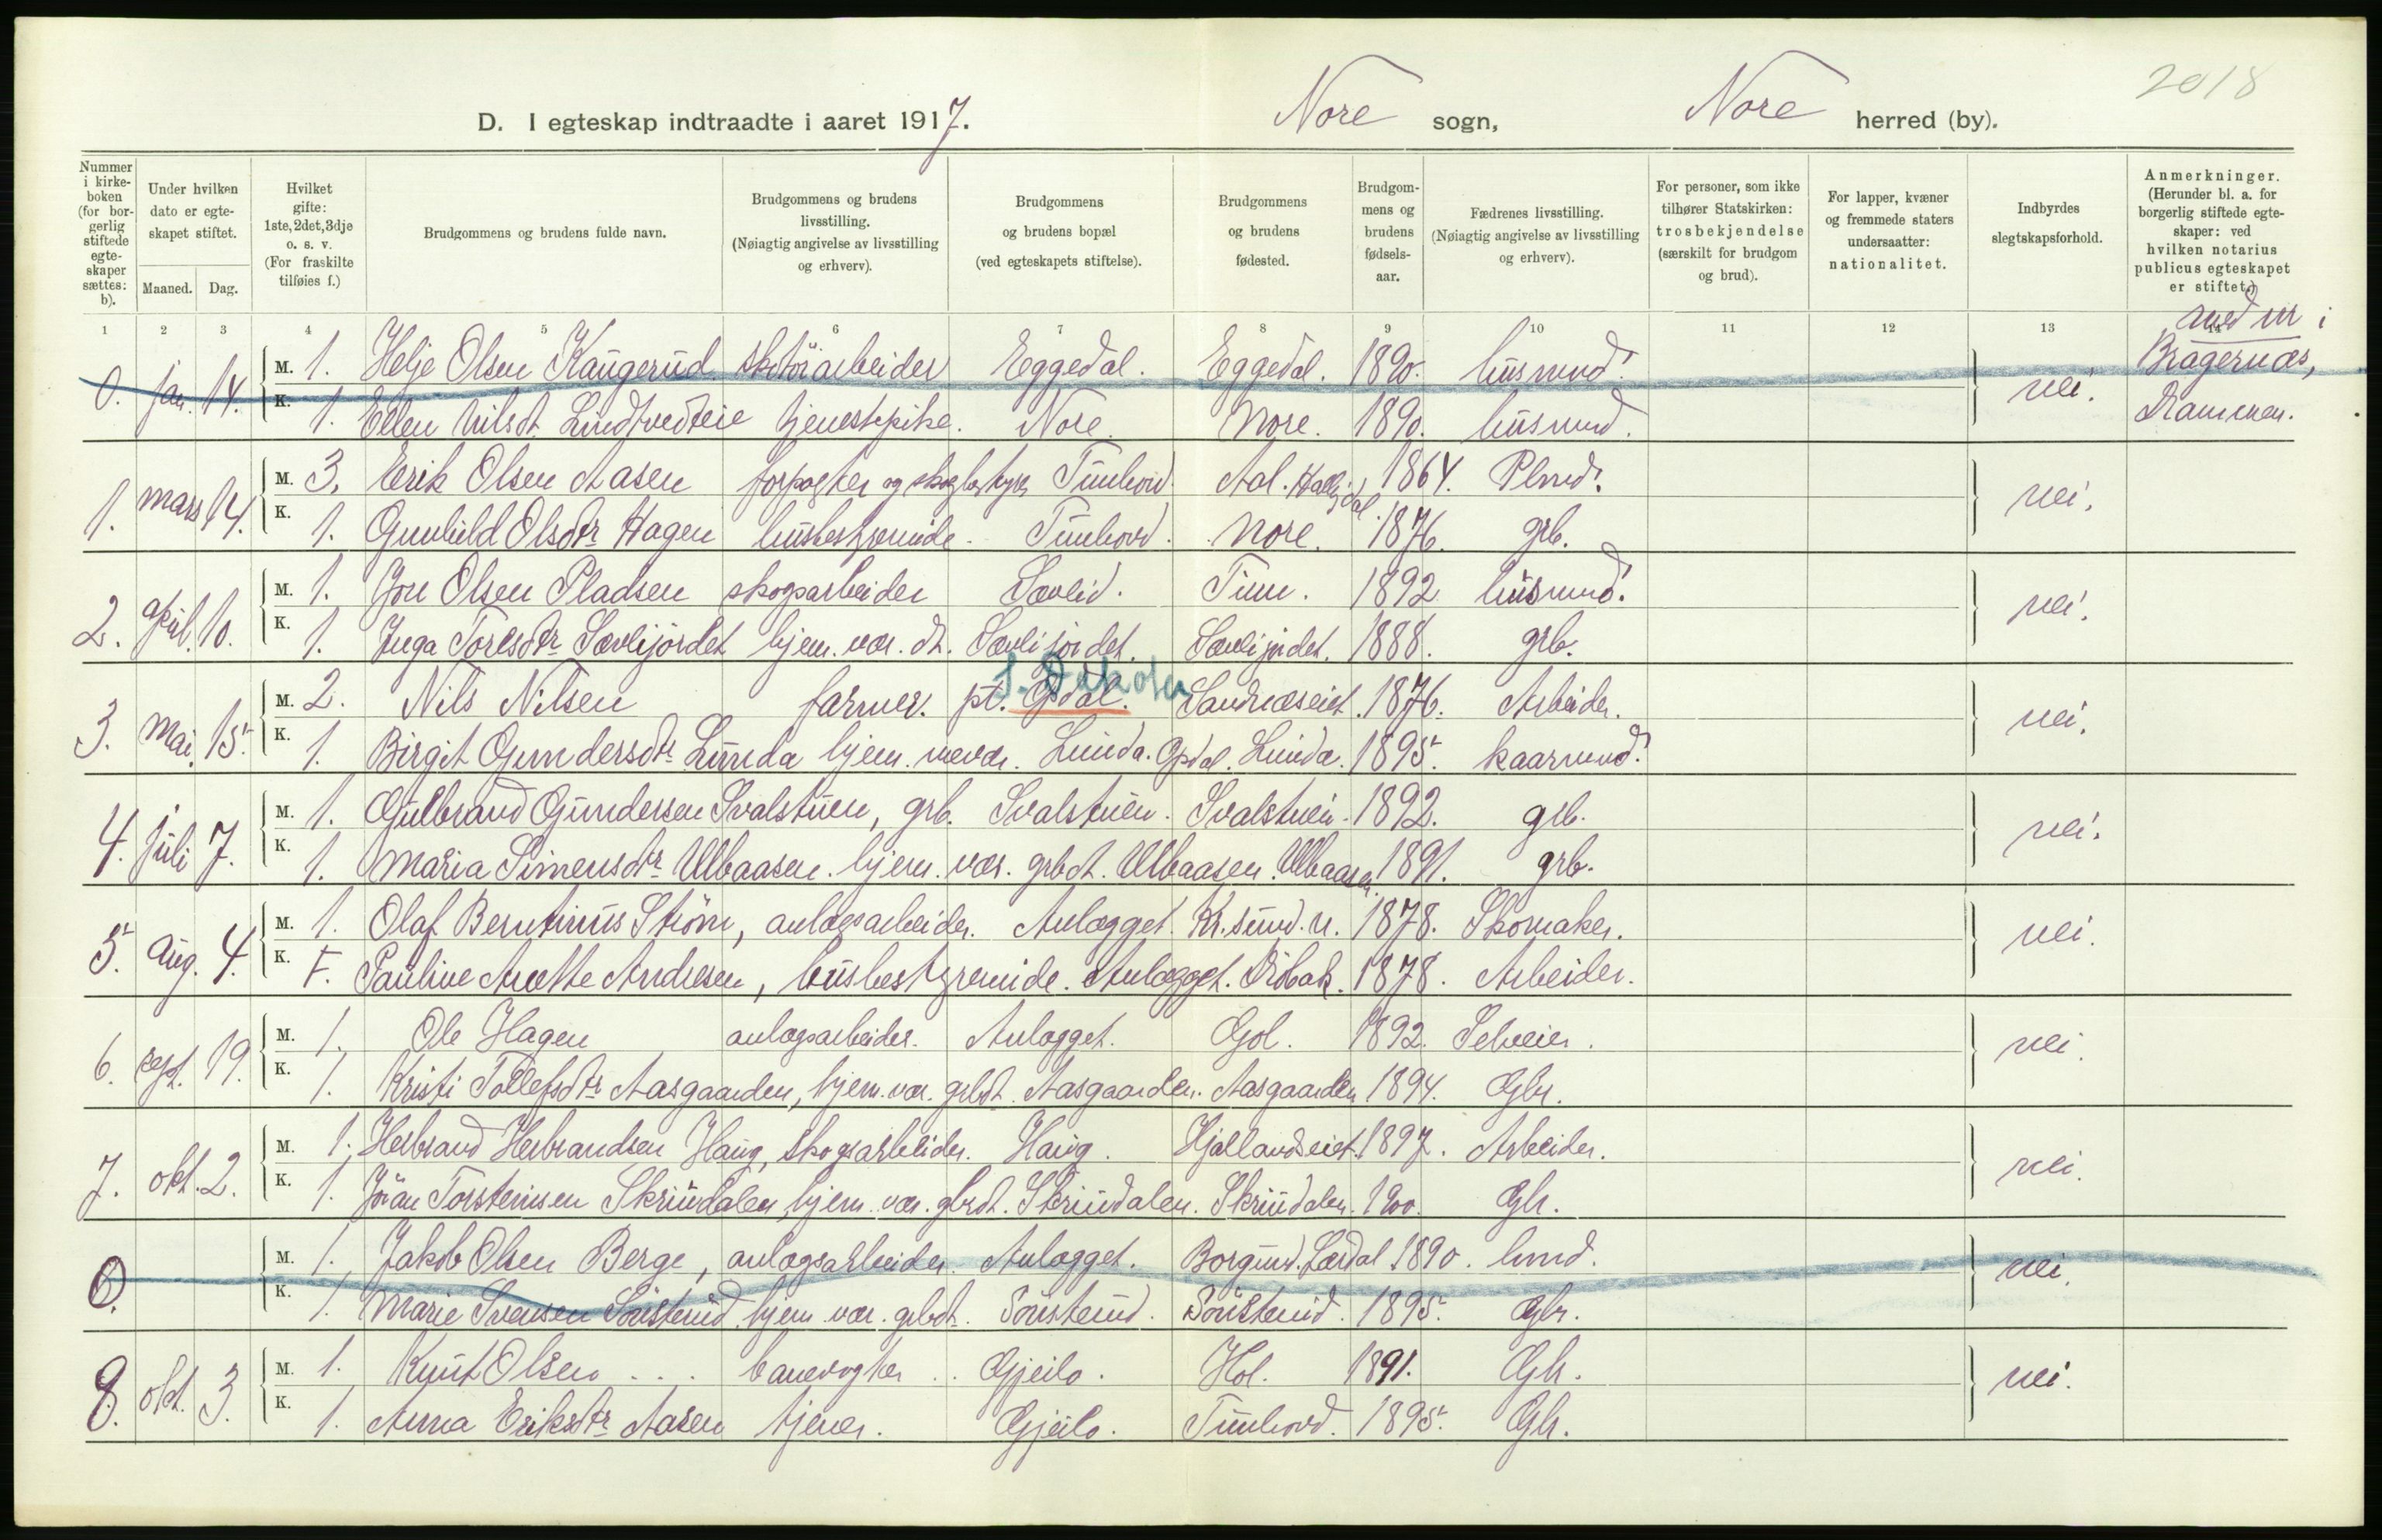 2018
D. I egteskap indtraadte i aaret 1917. Nore sogn, Nore herred (by).
Nummer i kirkeboken (for borgerlig stiftede egteskaper sættes: b).
Under hvilken dato er egteskapet stiftet.
Maaned. Dag.
Hvilket gifte: 1ste, 2det, 3dje o. s. v. (For fraskilte tilføies f.)
Brudgommens og brudens fulde navn.
Brudgommens og brudens livsstilling. (Nøiagtig angivelse av livsstilling og erhverv).
Brudgommens og brudens bopæl (ved egteskapets stiftelse).
Brudgommens og brudens fødested.
Brudgommens og brudens fødselsaar.
Fædrenes livsstilling. (Nøiagtig angivelse av livsstilling og erhverv).
For personer, som ikke tilhører Statskirken: trosbekjendelse (særskilt for brudgom og brud).
For lapper, kvæner og fremmede staters undersaatter: nationalitet.
Indbyrdes slegtskapsforhold.
Anmerkninger. (Herunder bl. a. for borgerlig stiftede egteskaper: ved hvilken notarius publicus egteskapet er stiftet.)
1 2 3 4 5 6 7 8 9 10 11 12 13 14
0. jan. 14. M. 1. Helje Olsen Kaugerud Eggedal. Eggedal. 1890. husmnd. nei. Bragernæs,
K. 1. Ellen Nilsdt. Lindtvedteie tjenestepike. Nore. Nore. 1890. husmnd. Drammen.
1. mars 14. M. 3. Erik Olsen Aasen forpagter og skogbestyr. Tunhovd Aal. Hallingdal 1864. nei.
K. 1. Gunhild Olsdtr Hagen husbestyrerinde. Tunhovd. Nore. 1876. grb.
2. April. 10. M. 1. Jon Olsen Pladsen skogsarbeider Sævlid. Tinn. 1892 husmnd. nei.
K. 1. Inga Toresdtr Sævlijordet hjem. vær. dt. Sævlijordet. Sævlijordet. 1888. grb.
S. Dakota
3. Mai. 15. M. 2. Nils Nilsen farmer. pt. Opdal. 1876. Arbeider. nei.
K. 1. Birgit Gundersdtr Lunda hjem. Lunda. Opdal. Lunda. 1895. kaarmnd.
4. juli 7. M. 1. Gulbrand Gundersen Svalstuen, grb. Svalstuen. Svalstuen. 1892. grb. nei.
K. 1. Maria Simensdtr Ulbaasen. hjem. vær. grbdt. Ulbaasen. Ulbaasen. 1891. grb.
5. Aug. 4. M. 1. Olaf Berntinus Strøm, anlægsarbeider. Anlægget. Kr.sund. N. 1878. Skomaker. nei.
K. F. Pauline Anette Andresen, husbestyrerinde. Anlægget. Drøbak. 1878. Arbeider.
6. sept. 19. M. 1. Ole Hagen anlægsarbeider. Anlægget. Gol. 1892. Selveier. nei.
K. 1. Kristi Tollefsdtr Aasgaarden, hjem. vær. grbdt. Aasgaarden. Aasgaarden 1894. Gbr.
7. okt. 2. M. 1. Herbrand Herbrandsen Haug, skogsarbeider. Haug. Kjallandseiet. 1897. Arbeider. nei.
K. 1. Jöran Torsteinsen Skriudalen hjem. vær. gbrdt. Skriudalen. Skriudalen. 1900. Gb.
0. M. 1. Jakob Olsen Berge, anlægsarbeider. Anlægget. Borgund. Lærdal 1890. hmd. nei.
K. 1. Marie Svensen hjem. vær. grbdt. 1895. Gbr.
8. okt. 3. M. 1. Knut Olsen ... banevogter .. Gjeilo. Hol. 1891. Gb. nei.
K. 1. Anna Eriksdtr Aasen tjener. Gjeilo. Tunhovd. 1895. Gb.